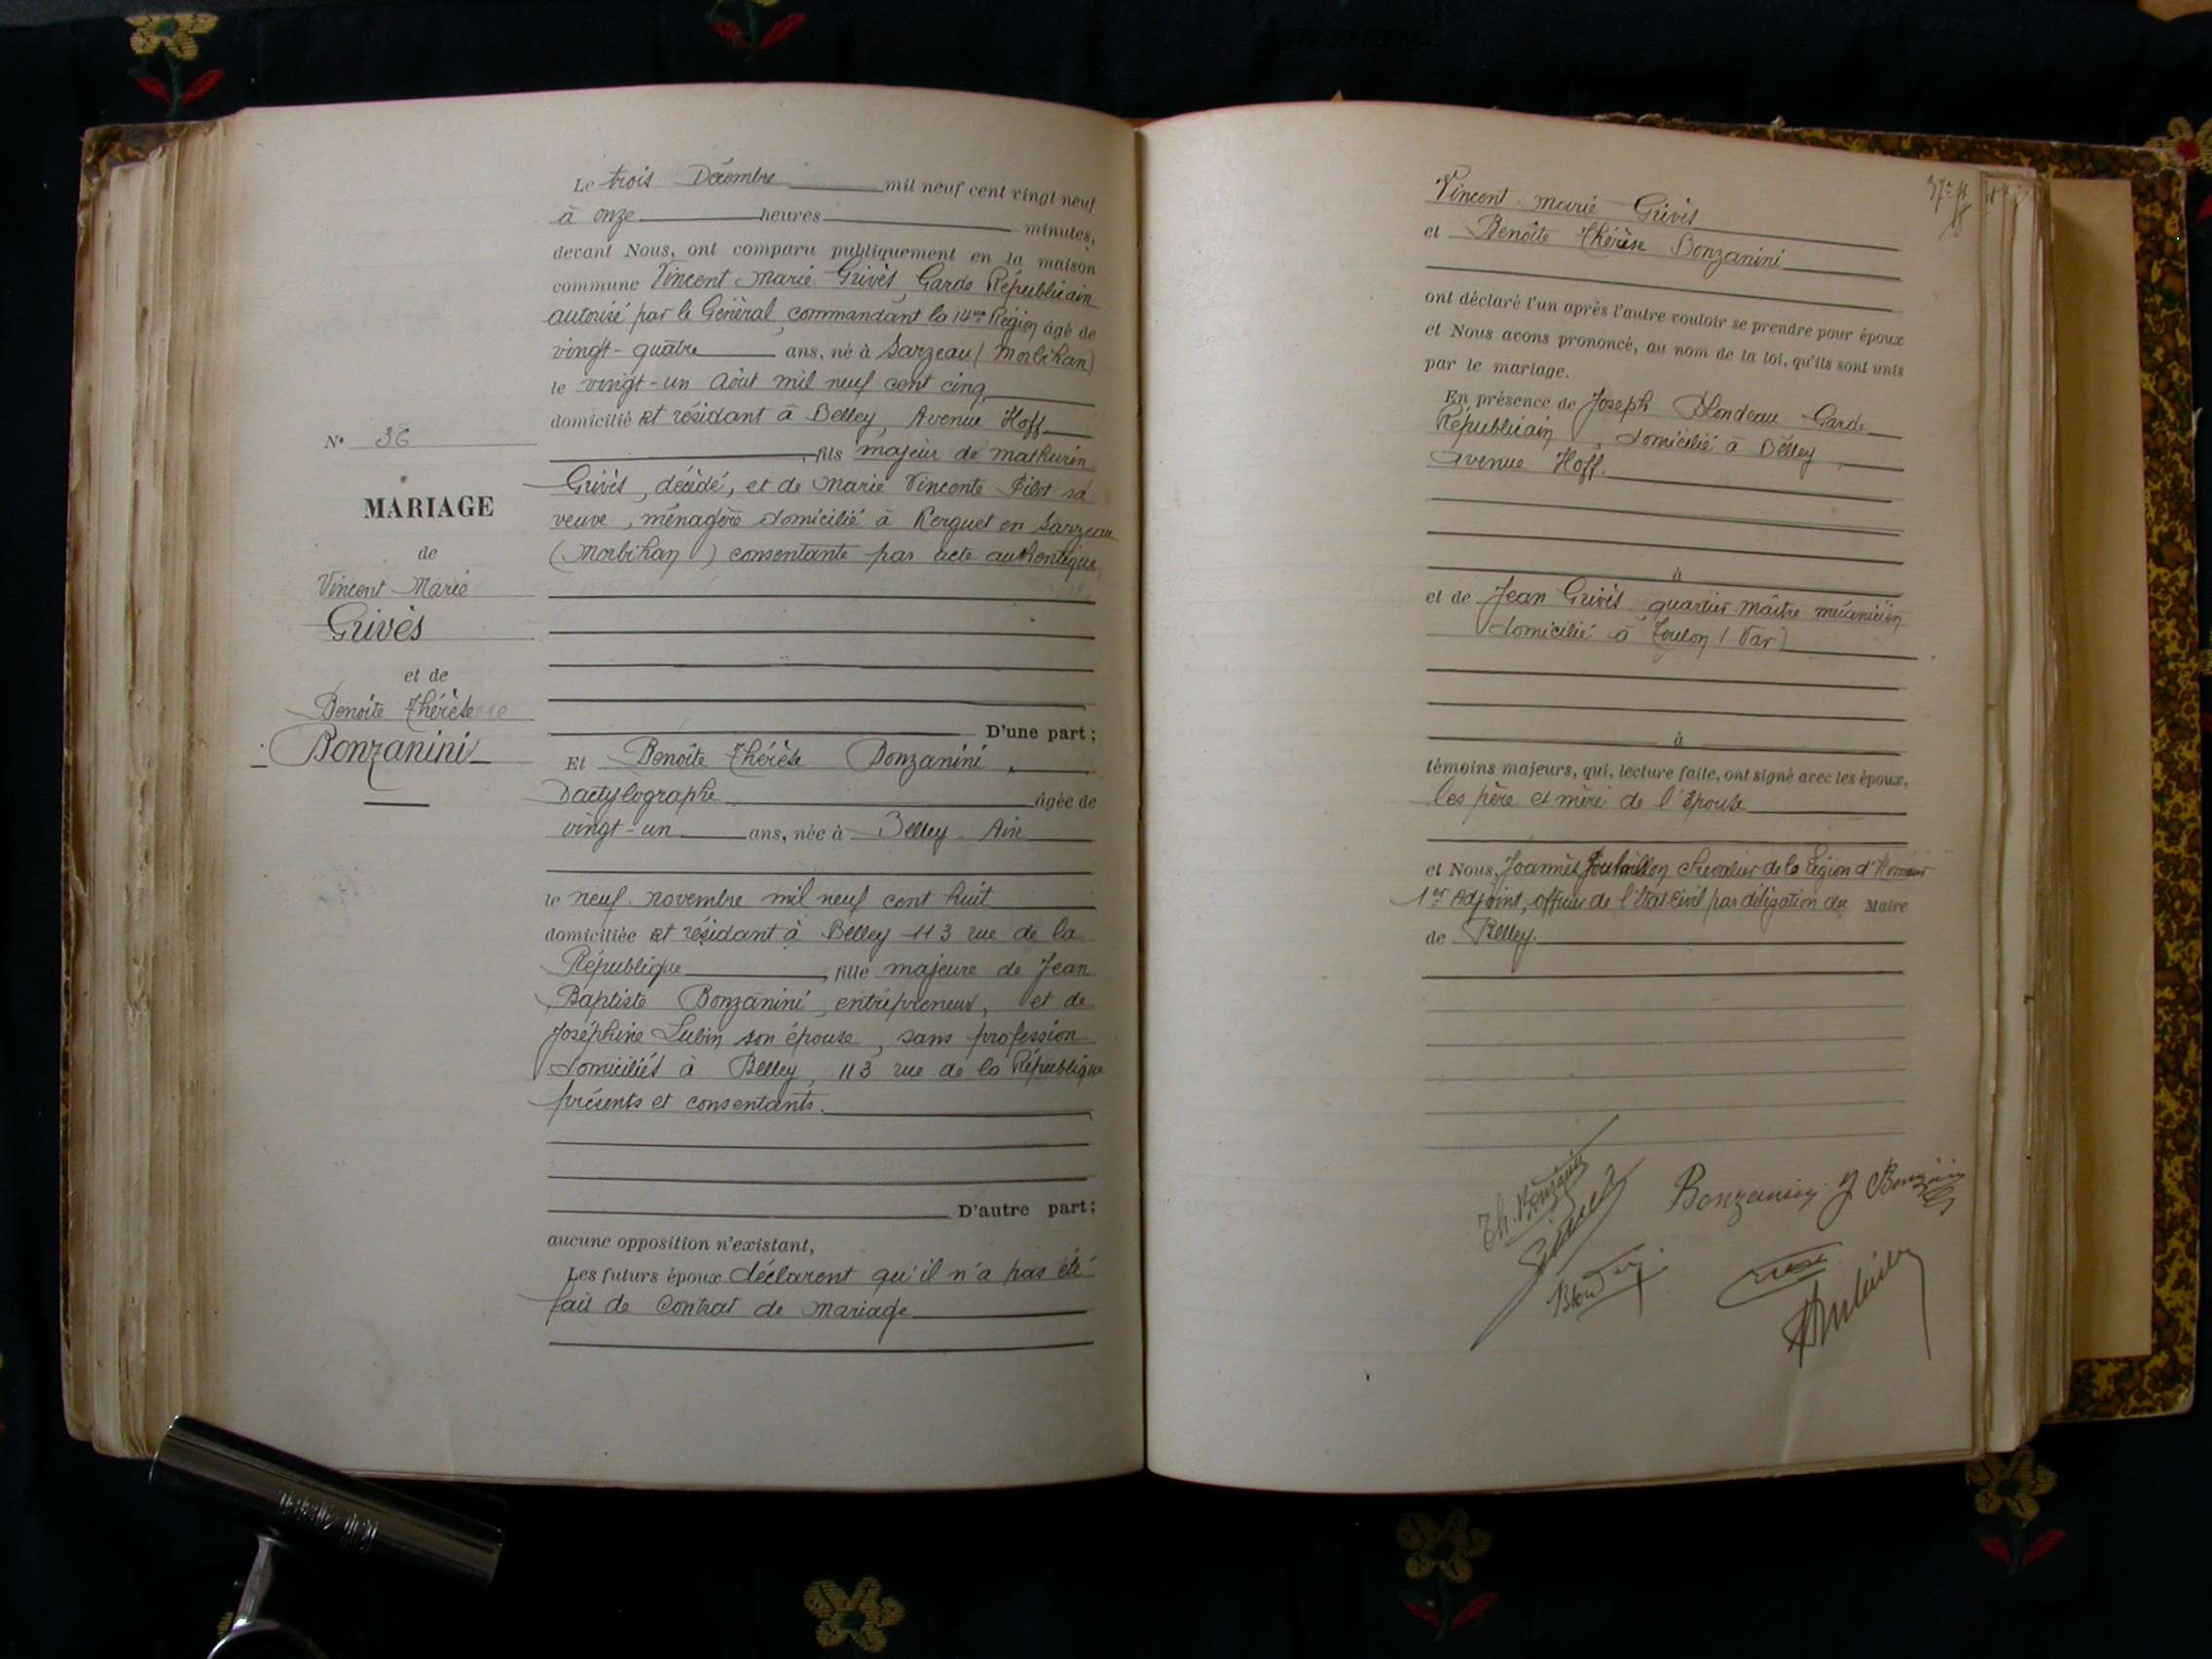 N° 36
MARIAGE
de
Vincent Marie
Grivès
et de
Benoite Thérèse
Bonzanini
Le trois Décembre mil neuf cent vingt neuf
à onze heures minutes,
devant Nous, ont comparu publiquement en la maison
commune Vincent Marie Grivès, Garde Républicain
autorisé par le Général commandant la 14ème Région âgé de
vingt-quatre ans, né à Sarzeau (Morbihan)
le vingt-un Août mil neuf cent cinq
domicilié et résidant à Belley, Avenue Hoff
, fils majeur de Mathurin
Grivès, décédé, et de Marie Vincente Pilet sa
veuve, ménagère domicilié à Kerguet en Sarzeau
(Morbihan) consentante par acte authentique
D'une part;
Et Benoîte Thérèse Bonzanini,
Dactylographe âgée de
vingt-un ans, née à Belley - Ain
le neuf novembre mil neuf cent huit
domiciliée et résidant à Belley 113 rue de la
République, fille majeure de Jean
Baptiste Bonzanini, entrepreneur, et de
Joséphine Lubin son épouse, sans profession
domiciliés à Belley, 113 rue de la République
présents et consentants.
D'autre part;
aucune opposition n'existant,
Les futurs époux déclarent qu'il n'a pas été
fait de contrat de mariage
Vincent Marie Grivès
et Benoîte Thérèse Bonzanini
ont déclaré l'un après l'autre vouloir se prendre pour époux
et Nous avons prononcé, au nom de la loi, qu'ils sont unis
par le mariage.
En présence de Joseph Blondeau Garde
Républicain, domicilié à Belley,
Avenue Hoff.
à
et de Jean Grivès, quartier maître mécanicien
domicilié à Toulon (Var)
à
témoins majeurs, qui, lecture faite, ont signé avec les époux,
les père et mère de l'épouse
et Nous, Joannès Chevalier de la Légion d'Honneur
1er Adjoint, officier de l'état civil par délégation du Maire
de Belley.
Th. Bonzanini
Bonzanini J Bonzanini